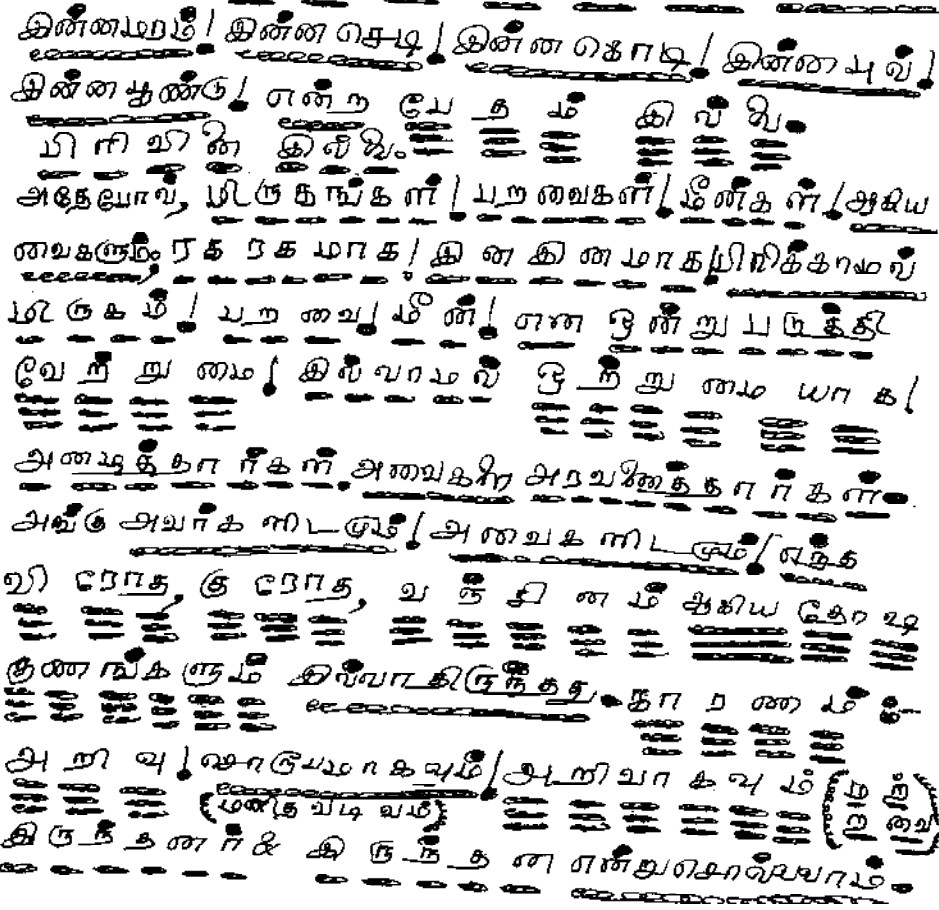 இன்னமரம்! இன்ன செடி! இன்ன கொடி! இன்ன புல்!
இன்ன பூண்டு! என்ற பேதம் இல்லை.
பிரிவினை இல்லை.
அதேபோல், மிருகங்கள்! பறவைகள்! மீன்கள்! ஆகிய
வைகளும், ரக ரகமாக! இன இனமாக! பிரிக்காமல்
மிருகம்! பறவை! மீன்! என ஒன்றுபடுத்தி
வேற்றுமை! இல்லாமல் ஒற்றுமையாக!
அழைத்தார்கள். அவைகளை அரவணைத்தார்கள்.
அங்கு அவர்களிடமும்! அவைகளிடமும்! எந்த
விரோத, குரோத, வஞ்சினம் ஆகிய தோஷ
குணங்களும் இல்லாதிருந்தது. காரணம் :-
அறிவு! ஷாரூபமாகவும்! அறிவாகவும்
(மனித வடிவம்)
இருந்தனர் & இருந்தன என்றுசொல்லலாம்.